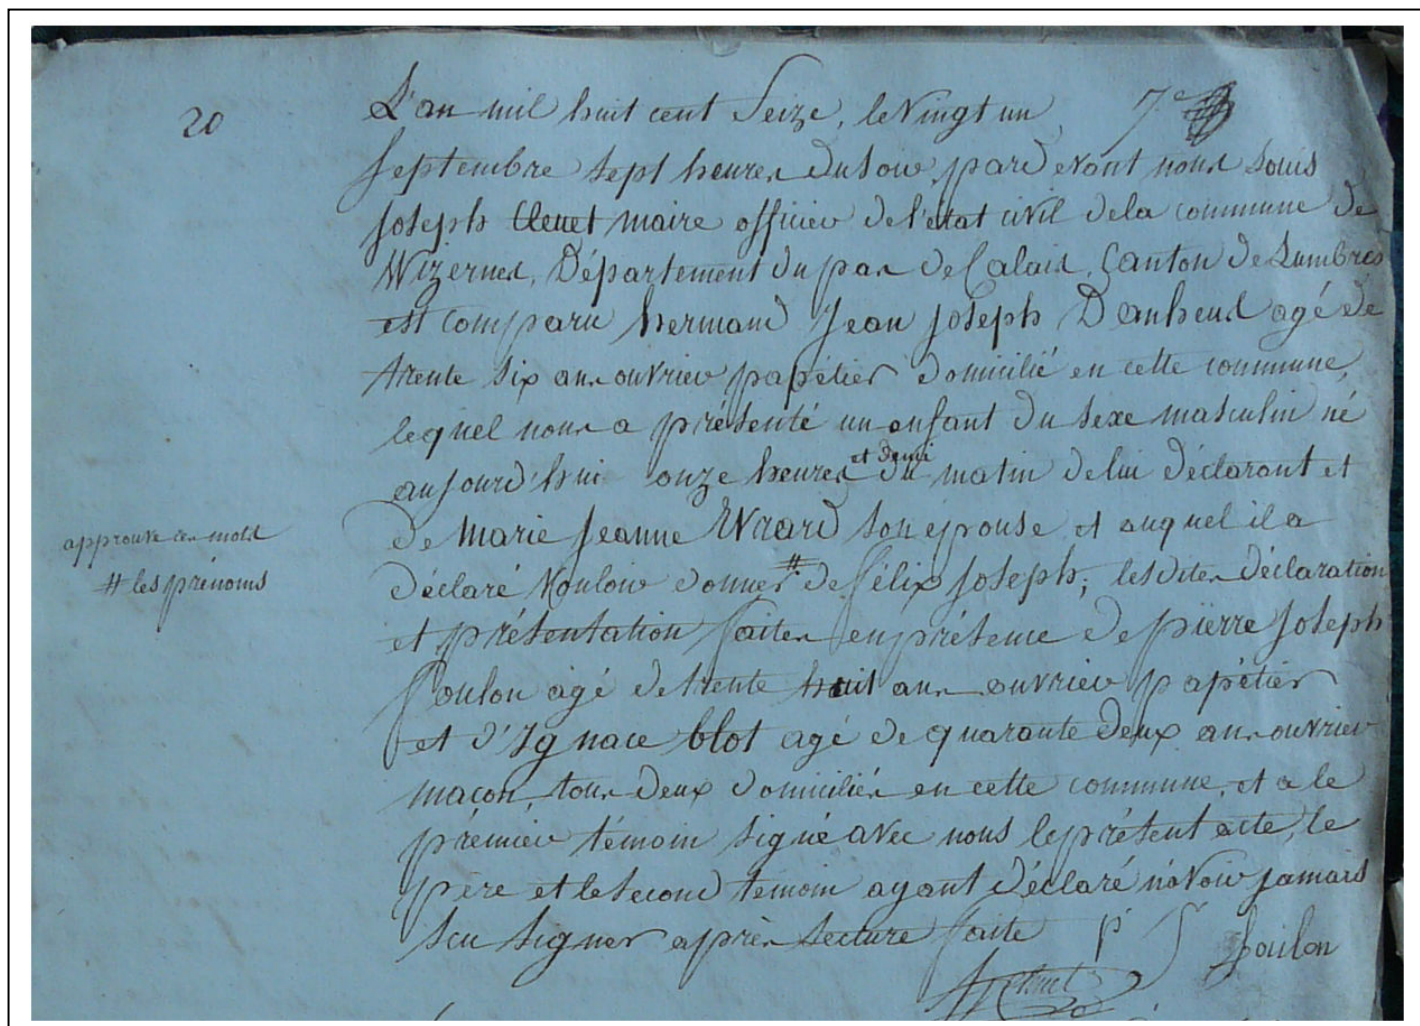 20
L'an mil huit cent Seize, le Vingt un 7e
septembre sept heures du soir, pardevant nous Louis
Joseph Cleuet maire officier de l'état civil de la commune de
Wizernes, Département du pas de Calais, Canton de Lumbres
est comparu hermand Jean Joseph Danheus agé de
trente six ans ouvrier papétier domicilié en cette commune,
lequel nous a présenté un enfant du sexe masculin né
aujourd'hui onze heures et demi du matin de lui déclarant et
de Marie Jeanne Evrard son epouse et auquel il a
approuvé ces mots
déclaré Vouloir donner # de félix Joseph; les dites déclaration
# les prénoms
et présentation faites en présence de pierre Joseph
foulon agé de trente huit ans ouvrier papétier
et d'Ignace blot agé de quarante deux ans ouvrier
macon, tous deux domiciliés en cette commune, et a le
prémier témoin signé avec nous le présent acte, le
père et le second temoin ayant déclaré n'avoir jamais
scu signer après lecture faite P J foulon